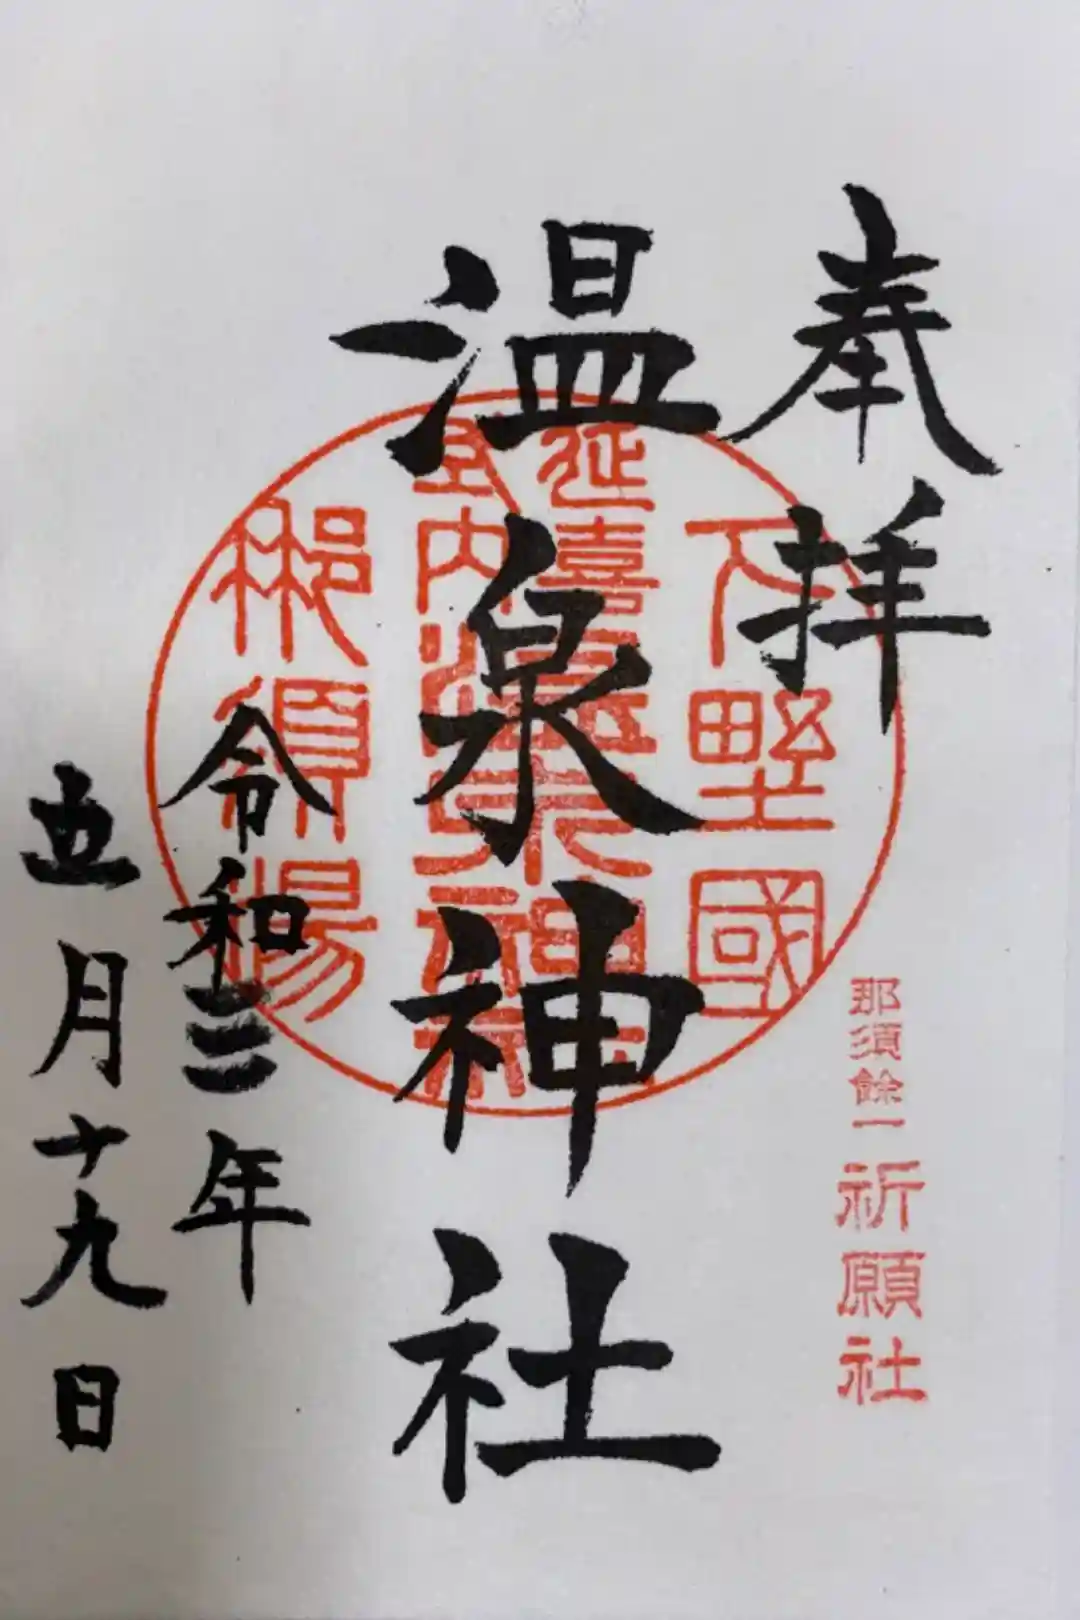 奉拝
那須餘一
祈願社
下野國
延喜
式内
温泉神社
那須湯
令和三年
五月十九日